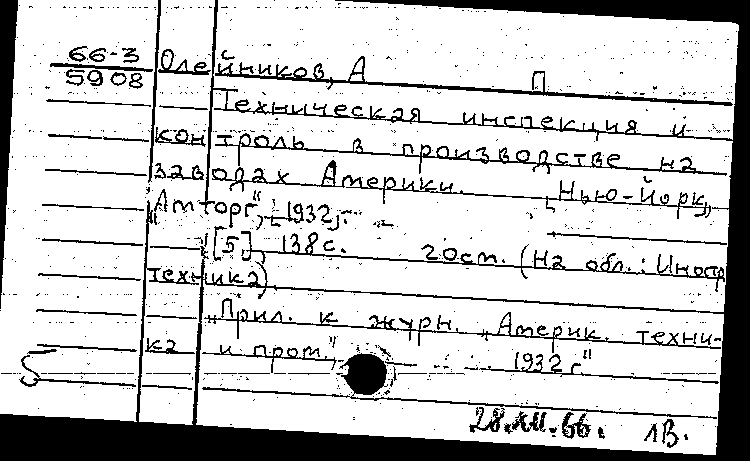 66-3 Олейников, А П
5908
Техническая инспекция и
контроль в производстве на
заводах Америки. [Нью-Йорк,
„Амторг“, [1932]г.
[5], 138с. 2ост. (На обл.: Иностр
техника)
„Прил. к журн. „Америк. техни-
ка и пром.“, 1932 г“
5
28.XII.66. 1В.